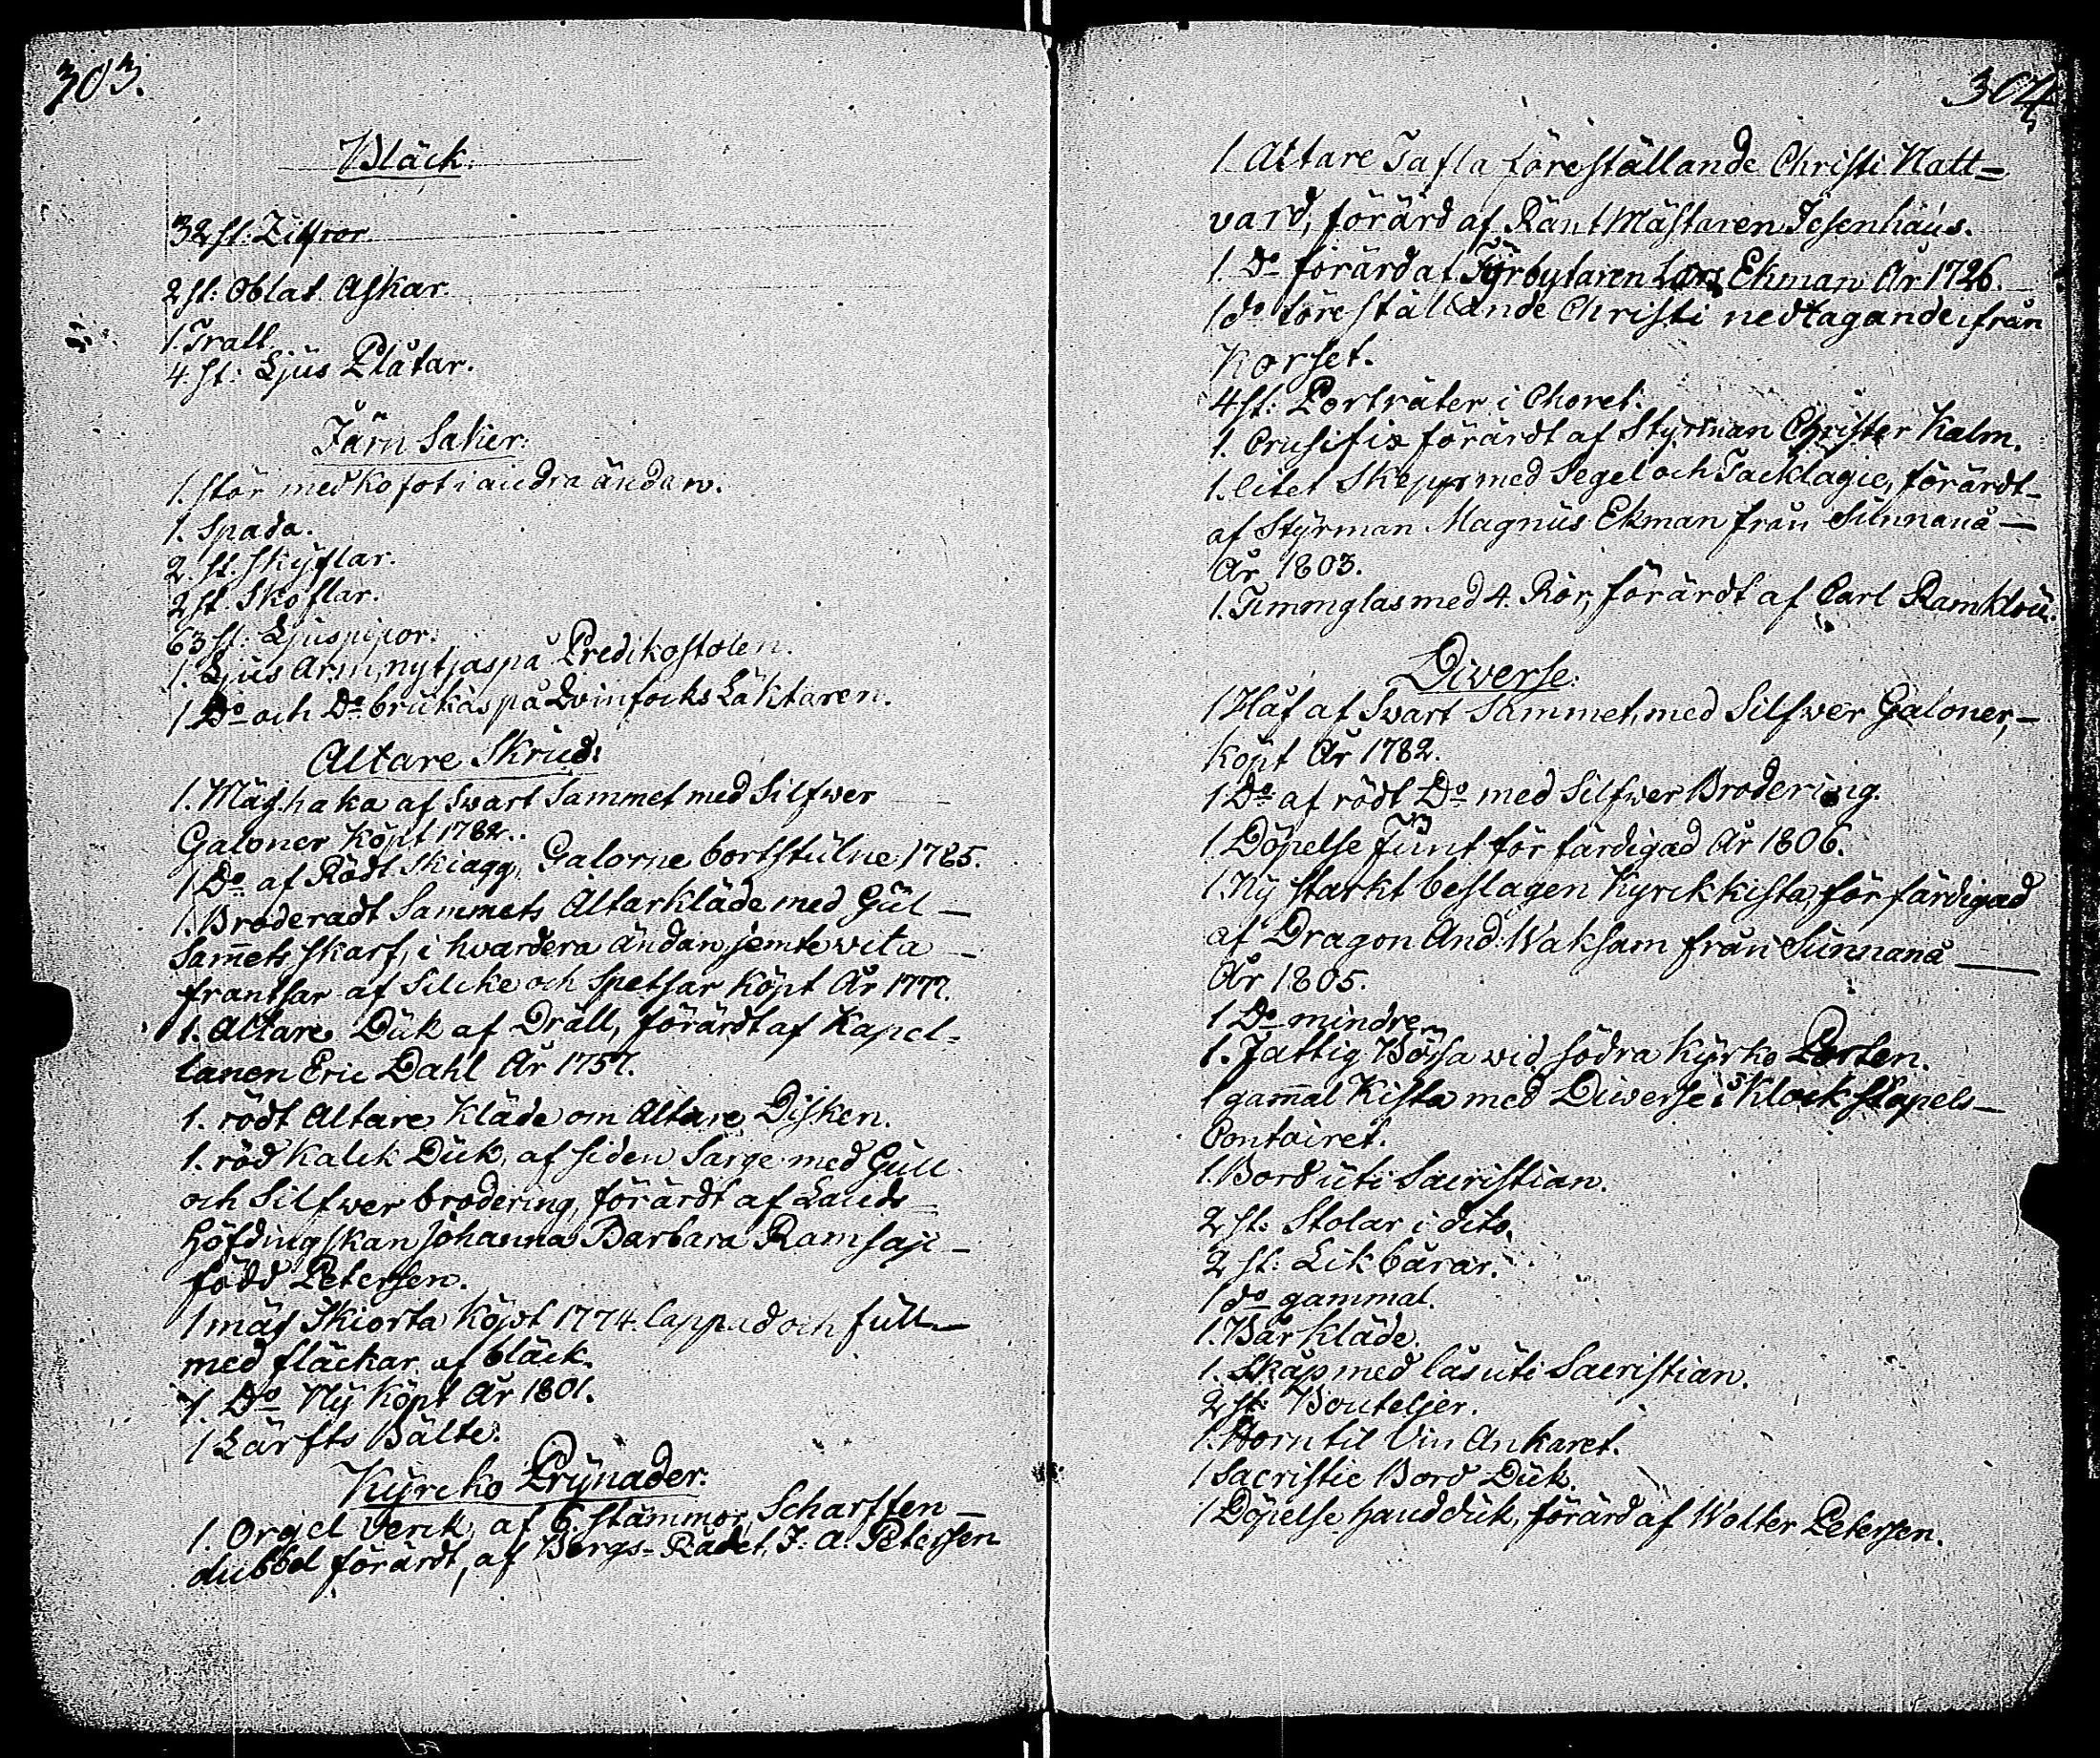 303.
Bläck.
32 st: Ziffror.
2 st: Oblat Askar.
1. Tratt.
4. st: Ljus Plåtar.
Järn Saker.
1. stör med kofot i andra ändan.
1. Spada.
2. st. skyflar.
2 st. Skoflar.
63 st: Ljuspipor.
1. Ljus Arm, nytjas på Predikostolen.
1 Do och Do brukas på Qvinfocks Läktaren.
Altare Skrud:
1. Mäshaka af Svart Sammet med Silfwer
Galoner köpt 1782.
1 Do af Rödt skiagg, Galorne bortstulne 1785.
1. Broderadt Sammets Altarkläde med Gul
Sam̄ets skarf, i hvardera ändan jemte vita
frantsar af Silcke och Spetsar köpt År 1777.
1. Altare Duk af Dräll, förärdt af Kapel-
lanen Eric Dahl År 1757.
1. rödt Altare Kläde om Altare Disken.
1. röd Kalck Duk, af siden Sarge med Gull
och Silfwer brodering, förärdt af Lands-
höfdingskan Johanna Barbara Ramsay
född Petersen.
1 mäs Skiorta köpt 1774. lappad och full
med fläckar af bläck.
1. Do Ny köpt År 1801.
1 Lärfts Bälte.
Kyrcko Prynader.
1. Orgel verck, af 6. stämmor, Scharffen
dubbel förärdt, af Bergs-Rådet J: A. Petersen
304
1 Altare Tafla föreställande Christi Natt=
vard, förärd af Ränt Mästaren Jesenhaus.
1. Do förärd af Fyrbytaren Lars Ekman År 1726.
1 do föreställande Christi nedtagande ifrån
Korset.
4 st: Porträter i Choret.
1. Crusifix förärdt af Styrman Christer Kalm.
1. litet Skepp med Segel och Tacklagie, förärdt
af Styrman Magnus Ekman från Sunnanå
År 1803.
1. Timmglas med 4. Rör, förärdt af Carl Ramklou.
Diverse.
1 Håf af Svart Sammet, med Silfwer Galoner,
köpt År 1782.
1 Do af rödt Do med Silfwer Brodering.
1 Döpelse Funt för färdigad År 1806.
1 Ny starkt beslagen Kyrckkista, för färdigad
af Dragon And: Waksam från Sunnanå
År 1805.
1 Do mindre.
1. Fattig Bössa vid södra Kyrko Porten.
1 gam̄al Kista med Diverse i Klock stapels
Contoiret.
1. Bord uti Sacristian.
2 st: Stolar i dito.
2 st: Likbårar.
1 do gammal.
1. Bår kläde.
1. Skåp med lås uti Sacristian.
2 st: Bouteljer.
1. Horn til Vin Ankaret.
1 Sacristie Bord Duk.
1 Döpelse handduk, förärd af Wolter Petersen.